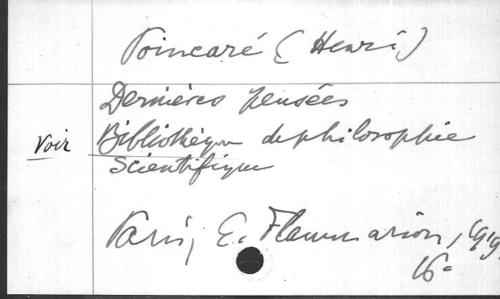 Poincaré (Henri)
Dernières pensées
Voir Bibliothèque de philosophie
Scientifique
Paris, E. Flammarion, 1919
16°